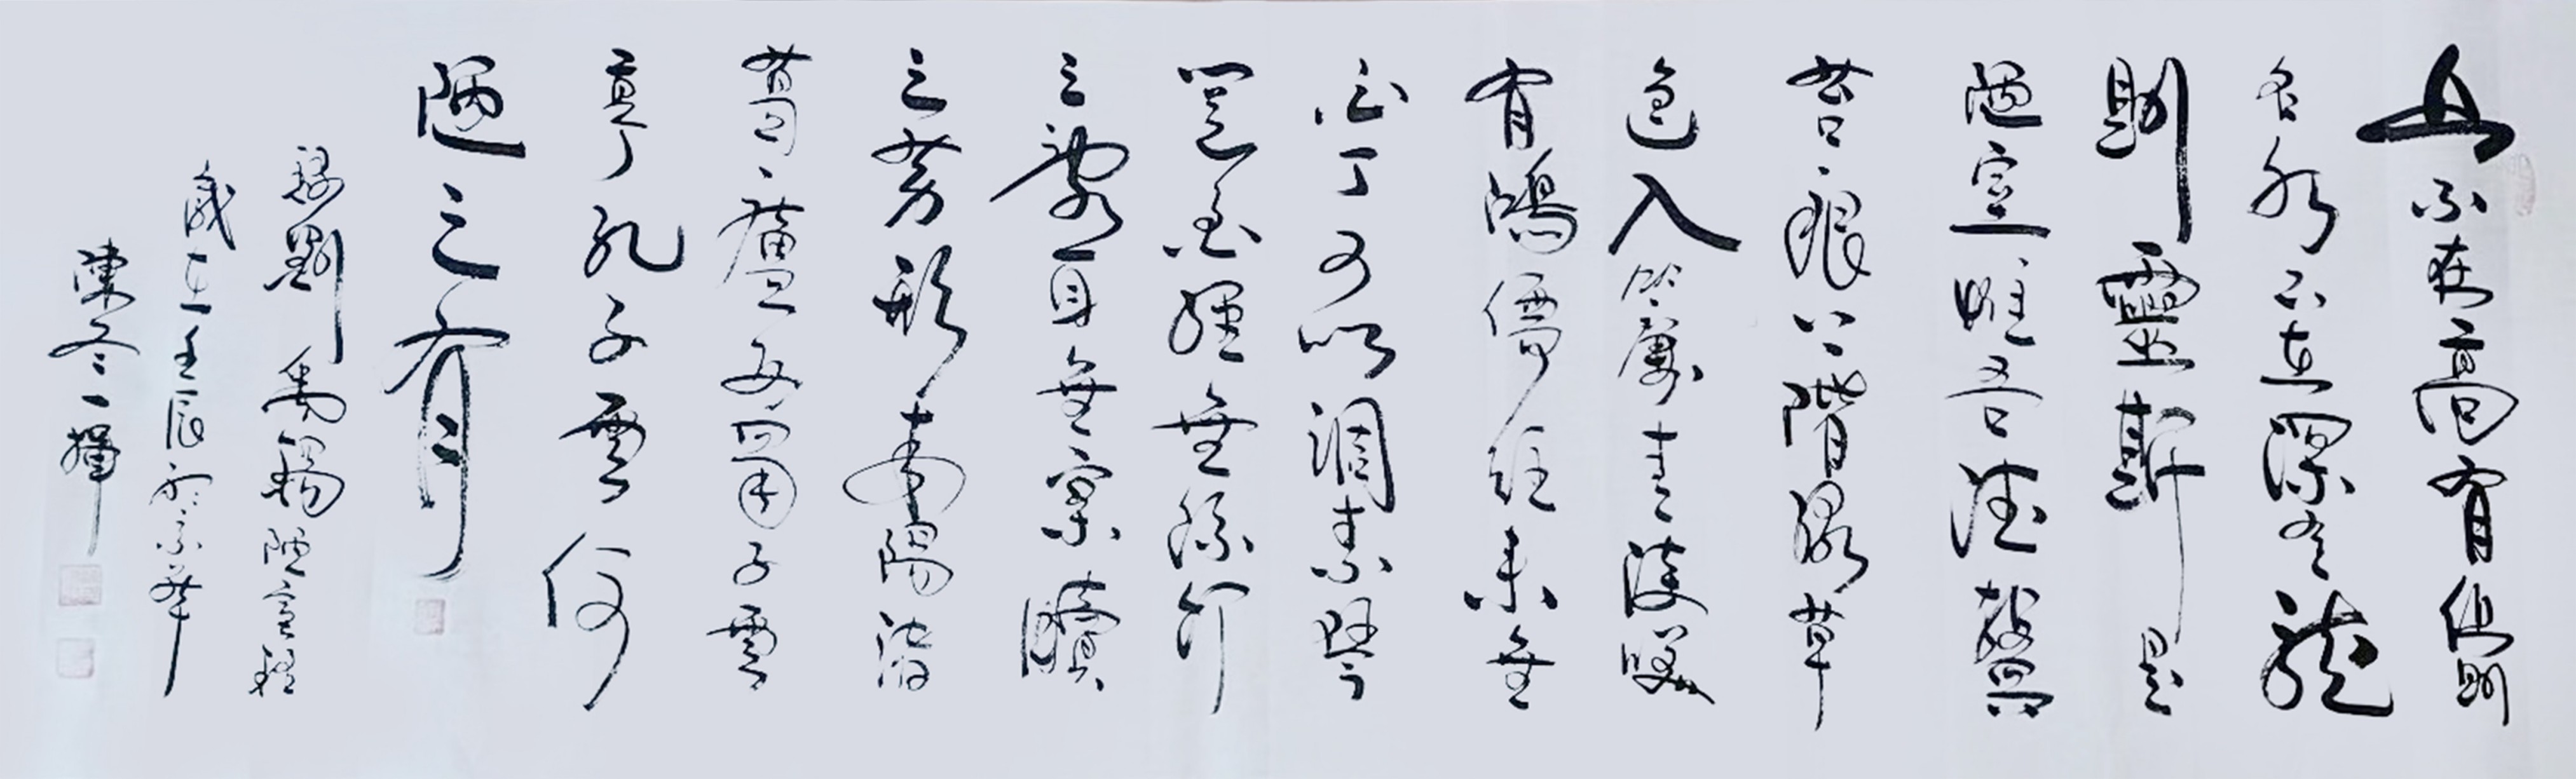 山不在高有仙則
名水不在深有龍
則靈斯是
陋室唯吾德馨
苔痕上階綠草
色入簾青談咲
有鴻儒往來無
白丁可以調素琴
閱金經無絲竹
之亂耳無案牘
之勞形南陽諸
葛廬西蜀子雲
亭孔子雲何
陋之有
錄劉禹錫陋室銘
歲在壬辰於京華
陳冬一揮